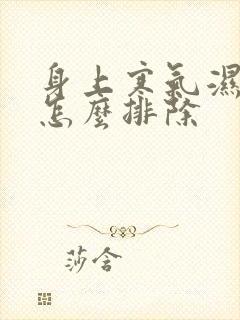 身上寒氣濕
怎麼排除
莎含